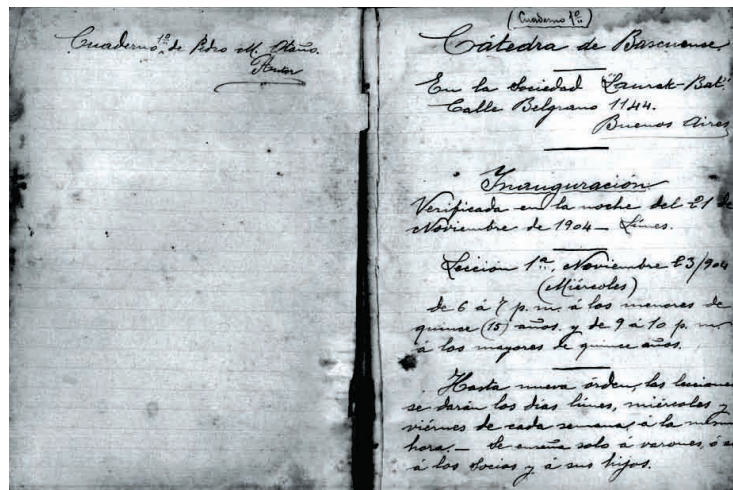 Cuaderno 1º de Pedro M. Otaño.
Autor
(Cuaderno 1º)
Cátedra de Bascuense
En la Sociedad "Laurak-Bat"
Calle Belgrano 1144.
Buenos Aires
Inauguración
Verificada en la noche del 21 de
Noviembre de 1904 — Lúnes.
Lección 1ª, Noviembre 23/904
(Miércoles)
de 6 á 7 p. m. á los menores de
quince (15) años. y de 9 á 10 p. m.
á los mayores de quince años.
Hasta nueva órden, las leccione
se darán los dias lúnes, miércoles y
viérnes de cada semana, á la mism
hora. — Se enseña solo á varones, ó
á los socios y á sus hijos.